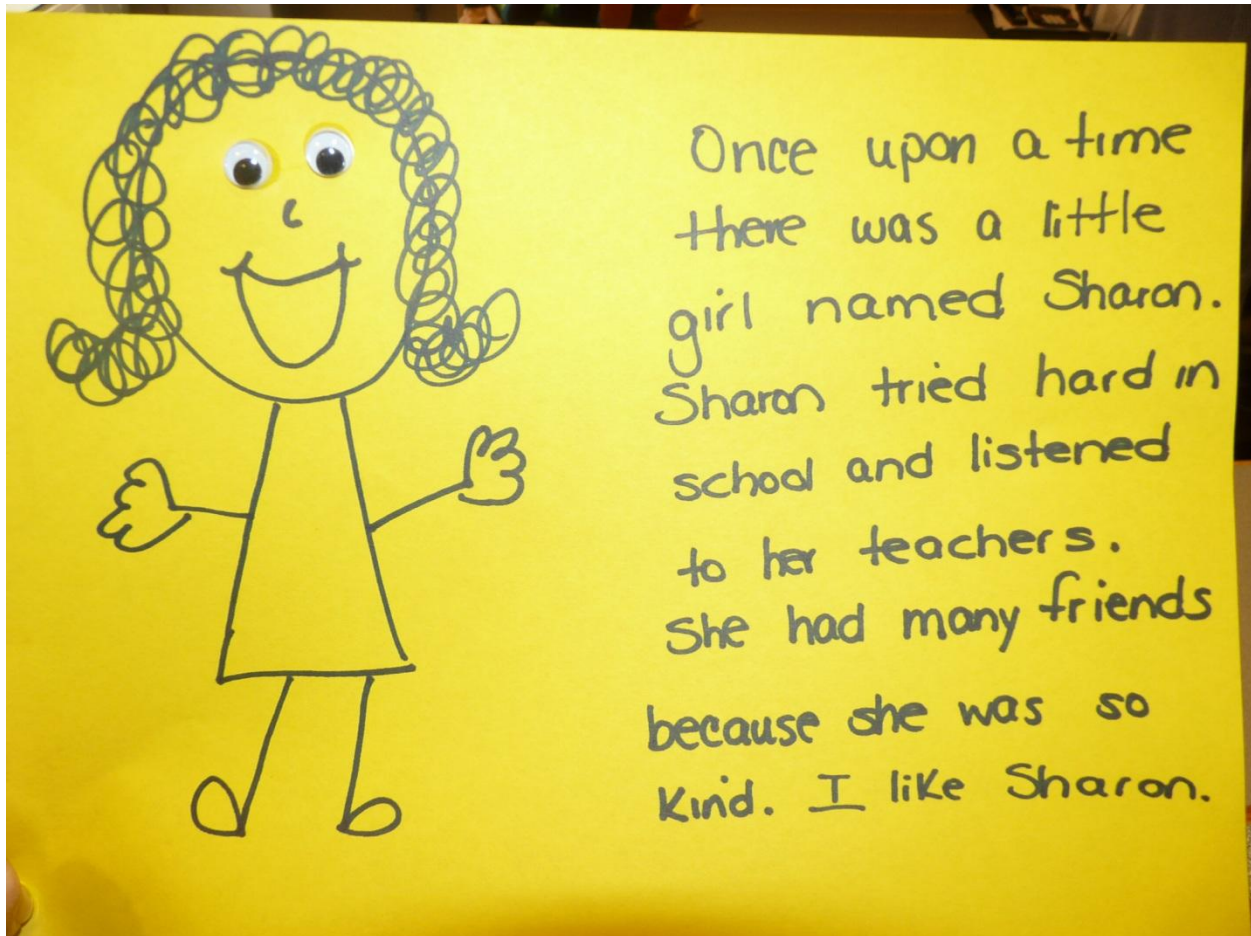 Once upon a time
there was a little
girl named Sharon.
Sharon tried hard in
school and listened
to her teachers.
She had many friends
because she was so
kind. I like Sharon.